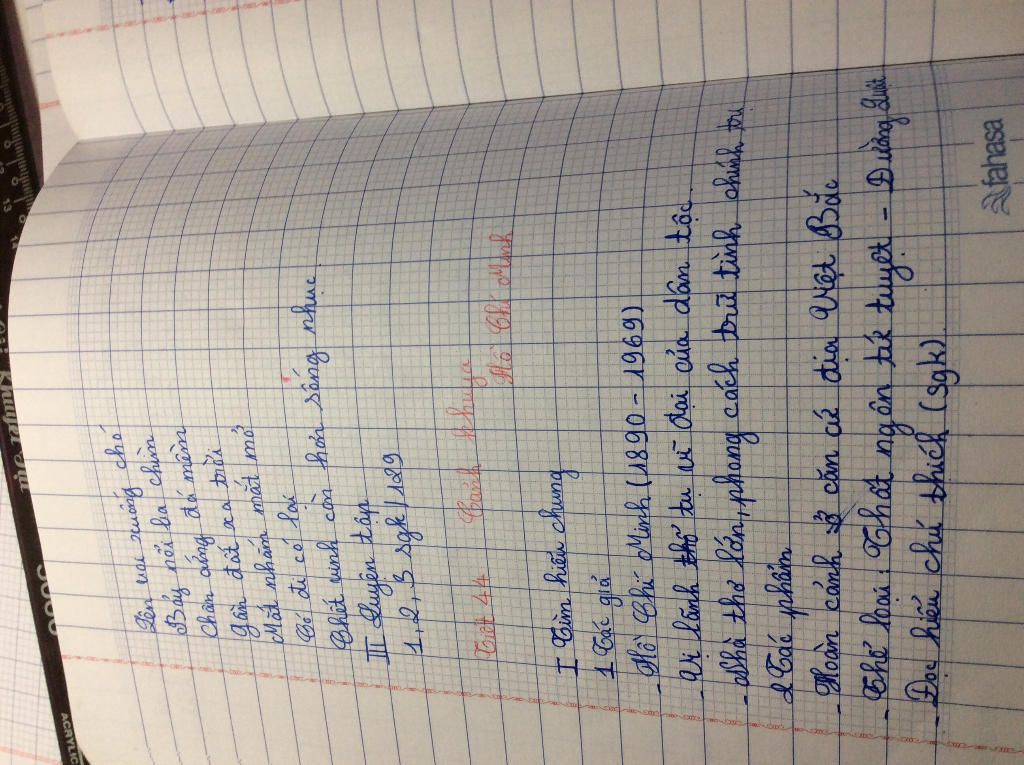 Lên voi xuống chó
Bảy nổi ba chìm
Chân cứng đá mềm
Gần đất xa trời
Mắt nhắm mắt mở
Có đi có lại
Chết vinh còn hơn sống nhục.
III Luyện tập
1, 2, 3 sgk/129
Tiết 44 Cảnh khuya
Hồ Chí Minh
I Tìm hiểu chung
1 Tác giả
- Hồ Chí Minh (1890 - 1969)
- Vị lãnh tụ vĩ đại của dân tộc.
- Nhà thơ lớn, phong cách trữ tình chính trị
2 Tác phẩm
- Hoàn cảnh ở căn cứ địa Việt Bắc
- Thể loại: Thất ngôn tứ tuyệt - Đường Luật
- Đọc hiểu chú thích (sgk)
fahasa
ACRYLIC